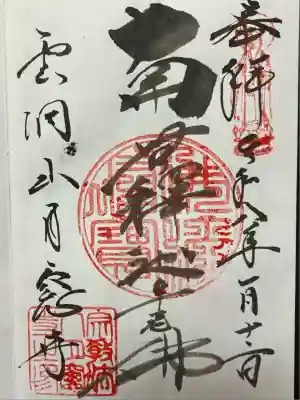 奉拝
令和八年一月十二日
南無釋迦牟尼佛
雲洞山月窓寺